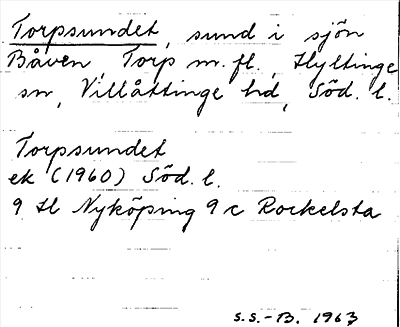 Torpsundet, sund i sjön
Båven, Torp m.fl., Hyltinge
sn, Villåttinge hd, Söd. l.
Torpsundet
ek (1960) Söd. l.
9 H Nyköping 9 c Rockelsta
S.S.-B. 1963